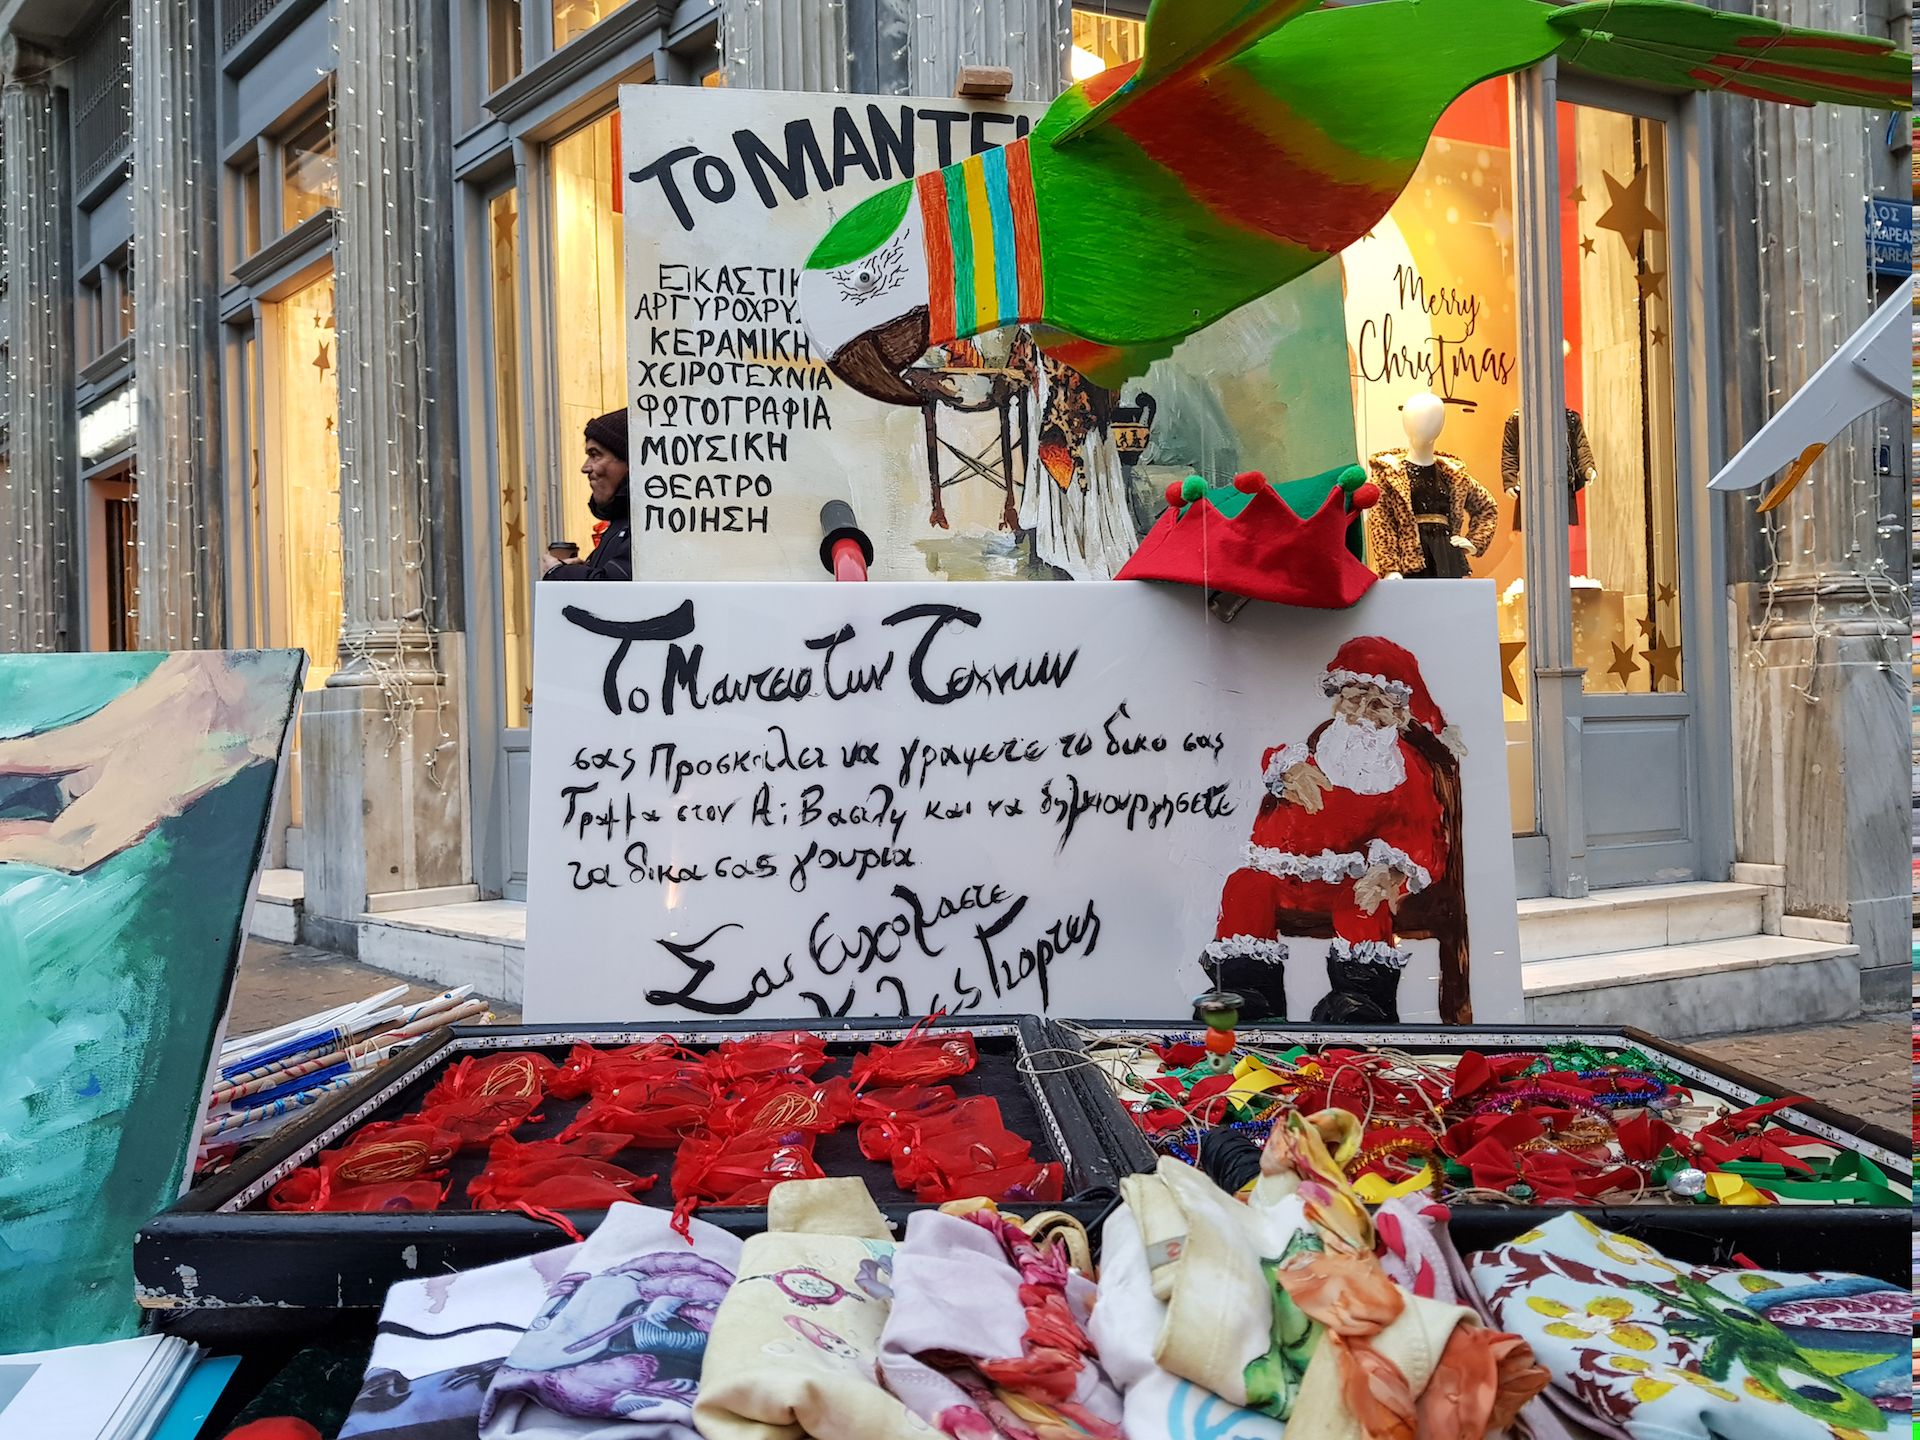 ΤΟ ΜΑΝΤΕΙ
ΕΙΚΑΣΤΙΚ
ΑΡΓΥΡΟΧΡΥΣ
ΚΕΡΑΜΙΚΗ
ΧΕΙΡΟΤΕΧΝΙΑ
ΦΩΤΟΓΡΑΦΙΑ
ΜΟΥΣΙΚΗ
ΘΕΑΤΡΟ
ΠΟΙΗΣΗ
Merry
Christmas
ΔΟΣ
ΚΑΡΕΑΣ
KAREAS
Το Μαντειο των Τεχνων
σας Προσκαλει να γραψετε το δικο σας
Γραμμα στον Αϊ Βασιλη και να δημιουργησετε
τα δικα σας γουρια
Σας Ευχομαστε
Καλες Γιορτες